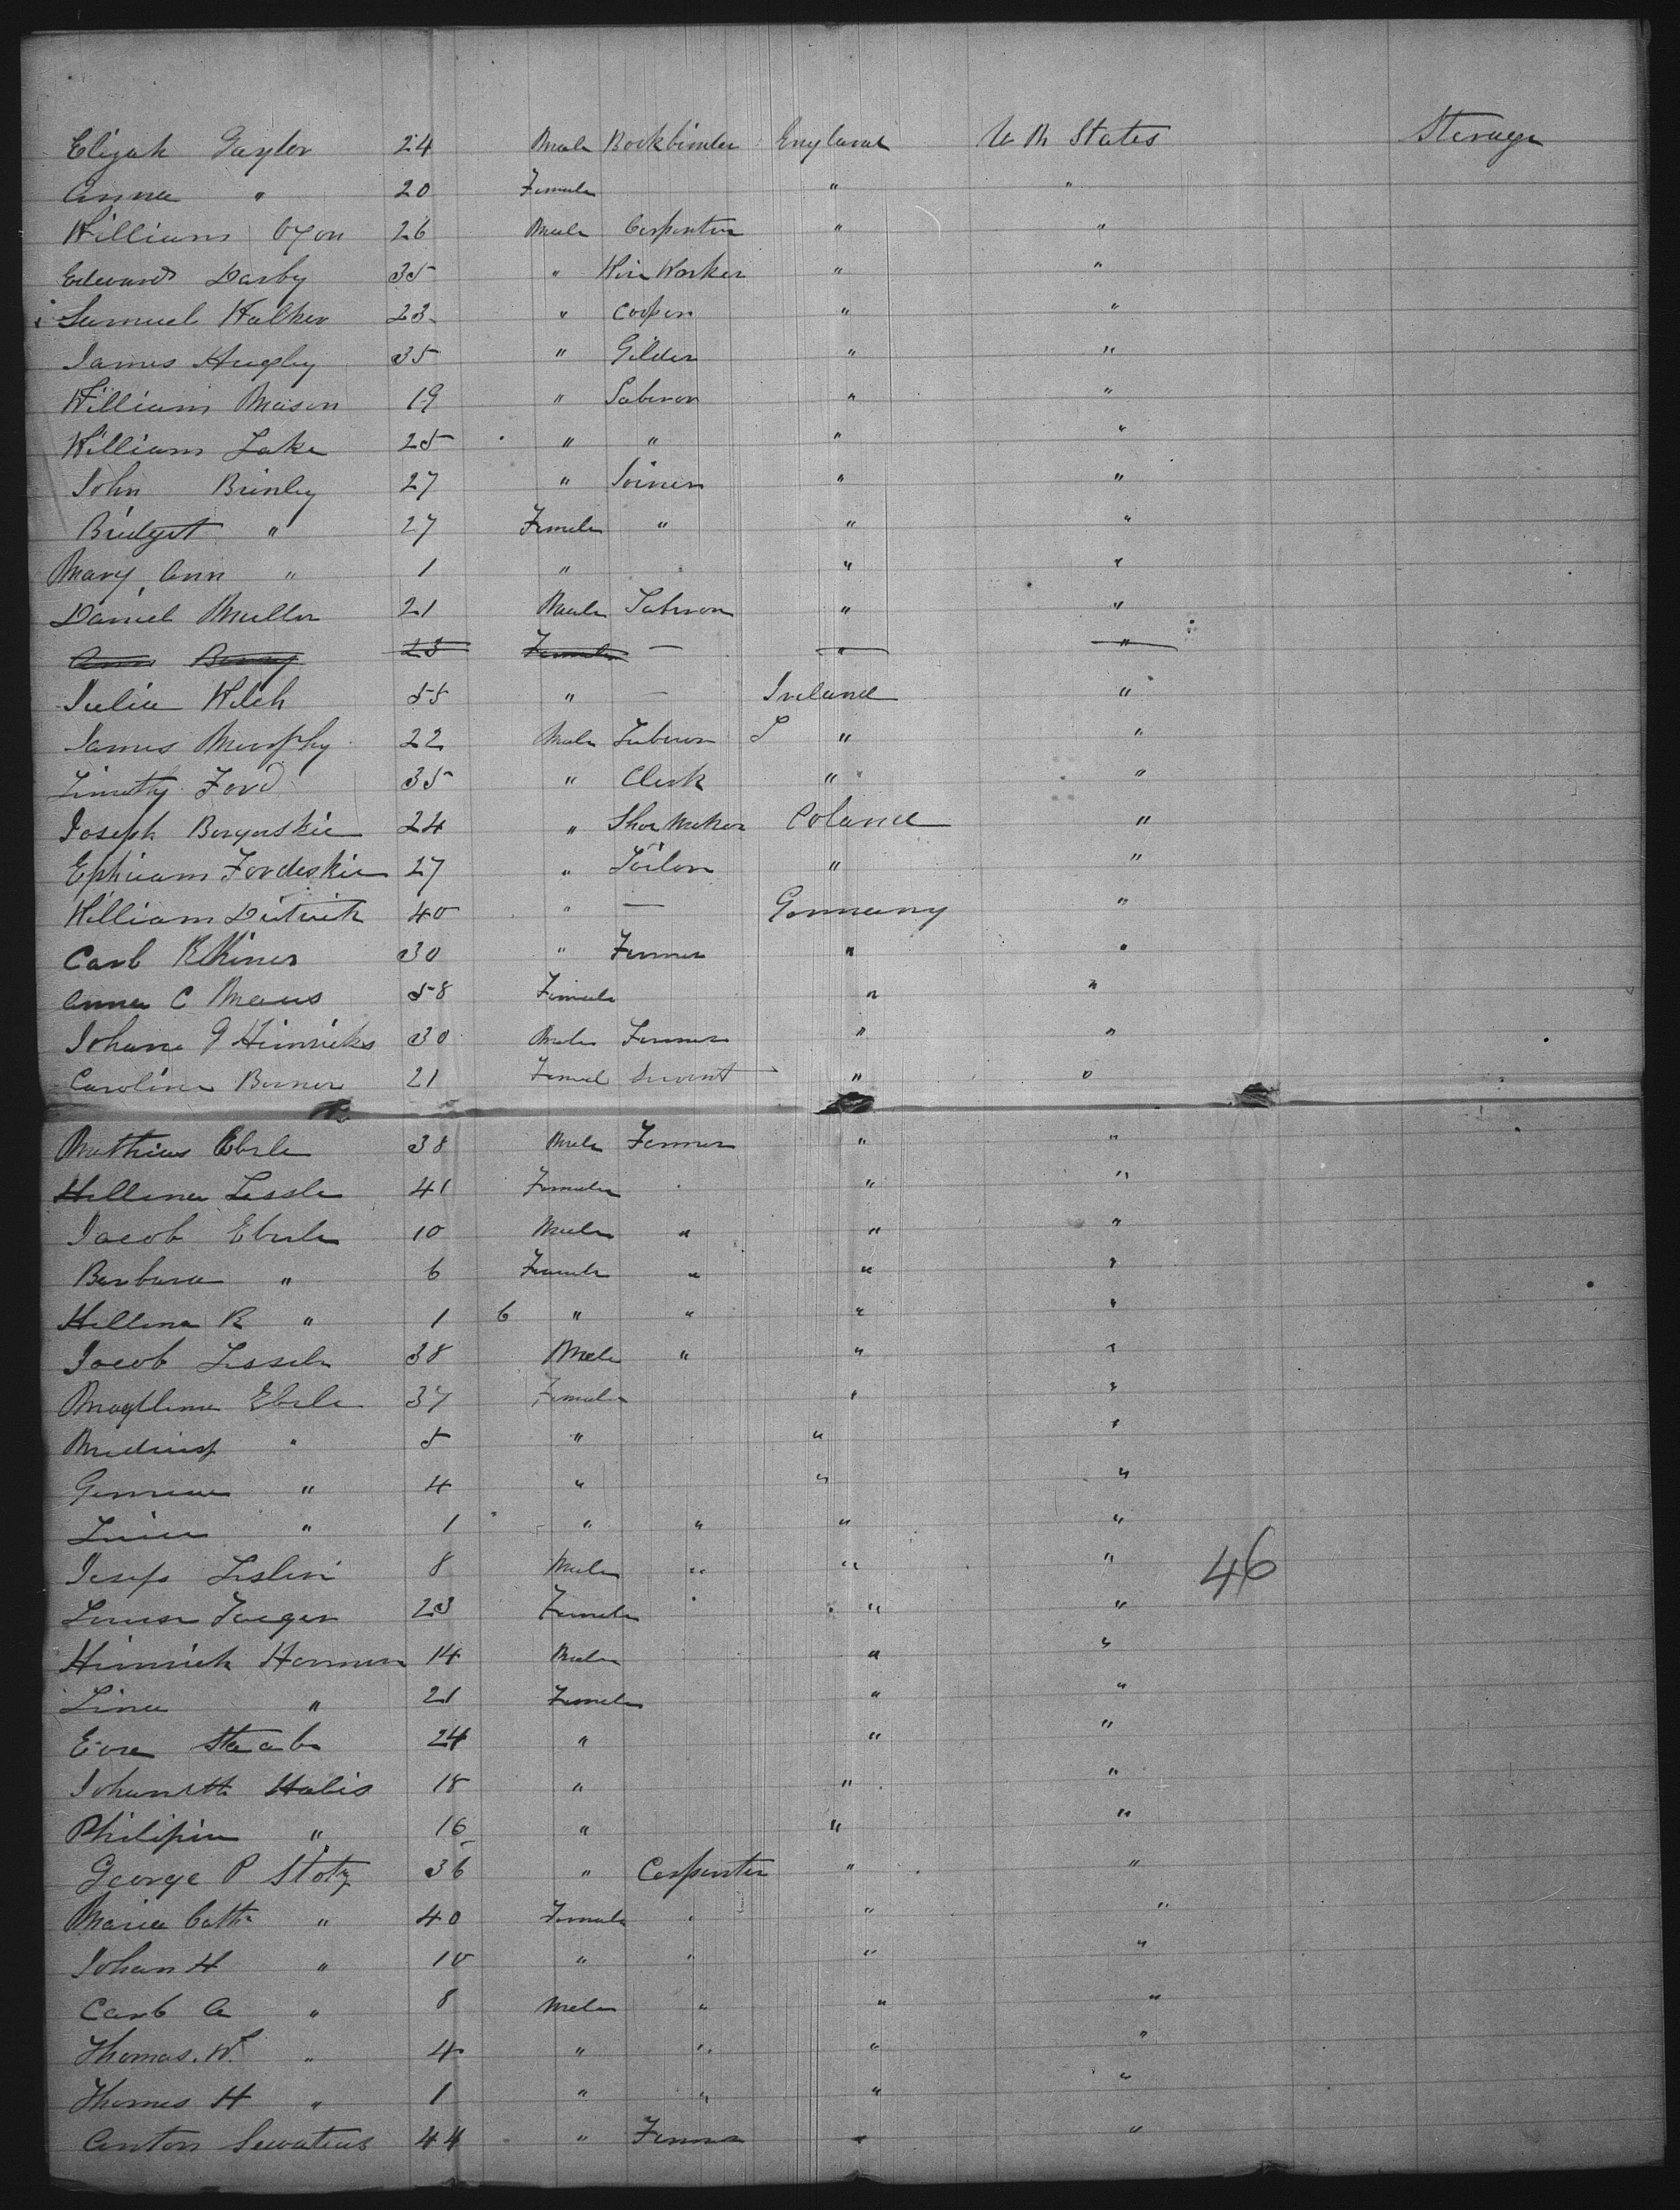 Elijah Taylor 24 Male Bookbinder England Un States Steerage
Anna " 20 Female " "
William 26 Male Carpenter " "
Edward Darby 35 " Wire Worker " "
Samuel Walker 23 " Cooper " "
James Hugley 35 " Gilder " "
William Mason 19 " Laberor " "
William Lake 25 " " " "
John Brinley 27 " Joiner " "
Bridget " 27 Female " " "
Mary Ann " 1 " " "
Daniel Muller 21 Male Laberor " "
Ann Berry 23 Female — " "
Julia Welch 55 " — Ireland "
James Murphy 22 Male Laberor " "
Timothy Ford 35 " Clerk " "
Joseph 24 " Shoe Maker Poland "
Ephriam Fordeskie 27 " Tailor " "
William Ditrich 40 " — Germany "
Carl 30 " Farmer " "
Anna C Maus 58 Female " "
Johann G Hinricks 30 Male Farmer " "
Carolina Berner 21 Femal Servant " "
Mathias Eberle 38 Male Farmer " "
Hellena Lessle 41 Female " "
Jacob Eberle 10 Male " " "
Barbara " 6 Female " " "
Hellena R " 1 6 " " " "
Jacob Lessele 38 Male " " "
Magllena Eberle 37 Female " "
" 5 " " "
" 4 " " "
" 1 " " " "
Josep Leslein 8 Male " " " 46
Louise Jaeger 23 Female " "
Hinrich Hermen 14 Male " "
Lina " 21 Female " "
Eva Staab 24 " " "
Johanetta Halis 18 " " "
Philipine " 16 " " "
George P Stotz 36 " Carpenter " "
Maria Cath " 40 Female " "
Johan H " 10 " " " "
Carl A " 8 Male " " "
Thomas W. " 4 " " " "
Thomas H " 1 " " " "
Anton Servatius 44 " Farmer " "